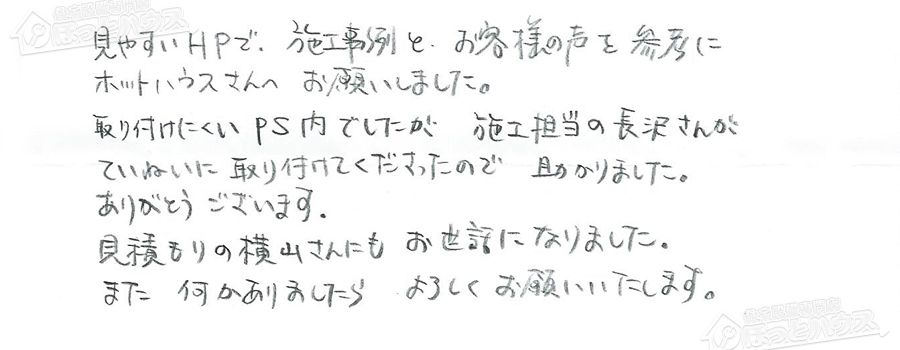 見やすいHPで、施工事例と、お客様の声を参考に
ホットハウスさんへ お願いしました。
取り付けにくいPS内でしたが 施工担当の長沢さんが
ていねいに取り付けてくださったので 助かりました。
ありがとうございます。
見積もりの横山さんにも お世話になりました。
また 何かありましたら よろしくお願いいたします。
ほっとハウス
ほっとハウス